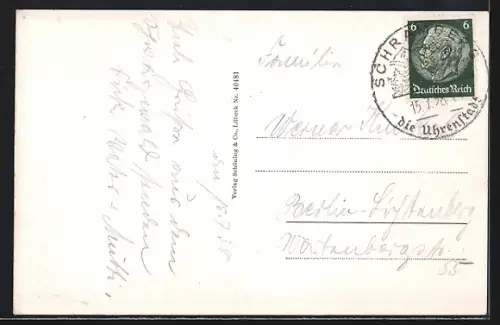 Viele Grüße aus dem
Schwarzwald senden
Vati u. Mutti.
den 15.7.38
Verlag Schöning & Co., Lübeck Nr. 40483
6 6
Deutsches Reich
SCHRAMBERG
15.7.38
die Uhrenstadt
Familie
Werner
Berlin-Lichtenberg
Wartenbergstr.
55